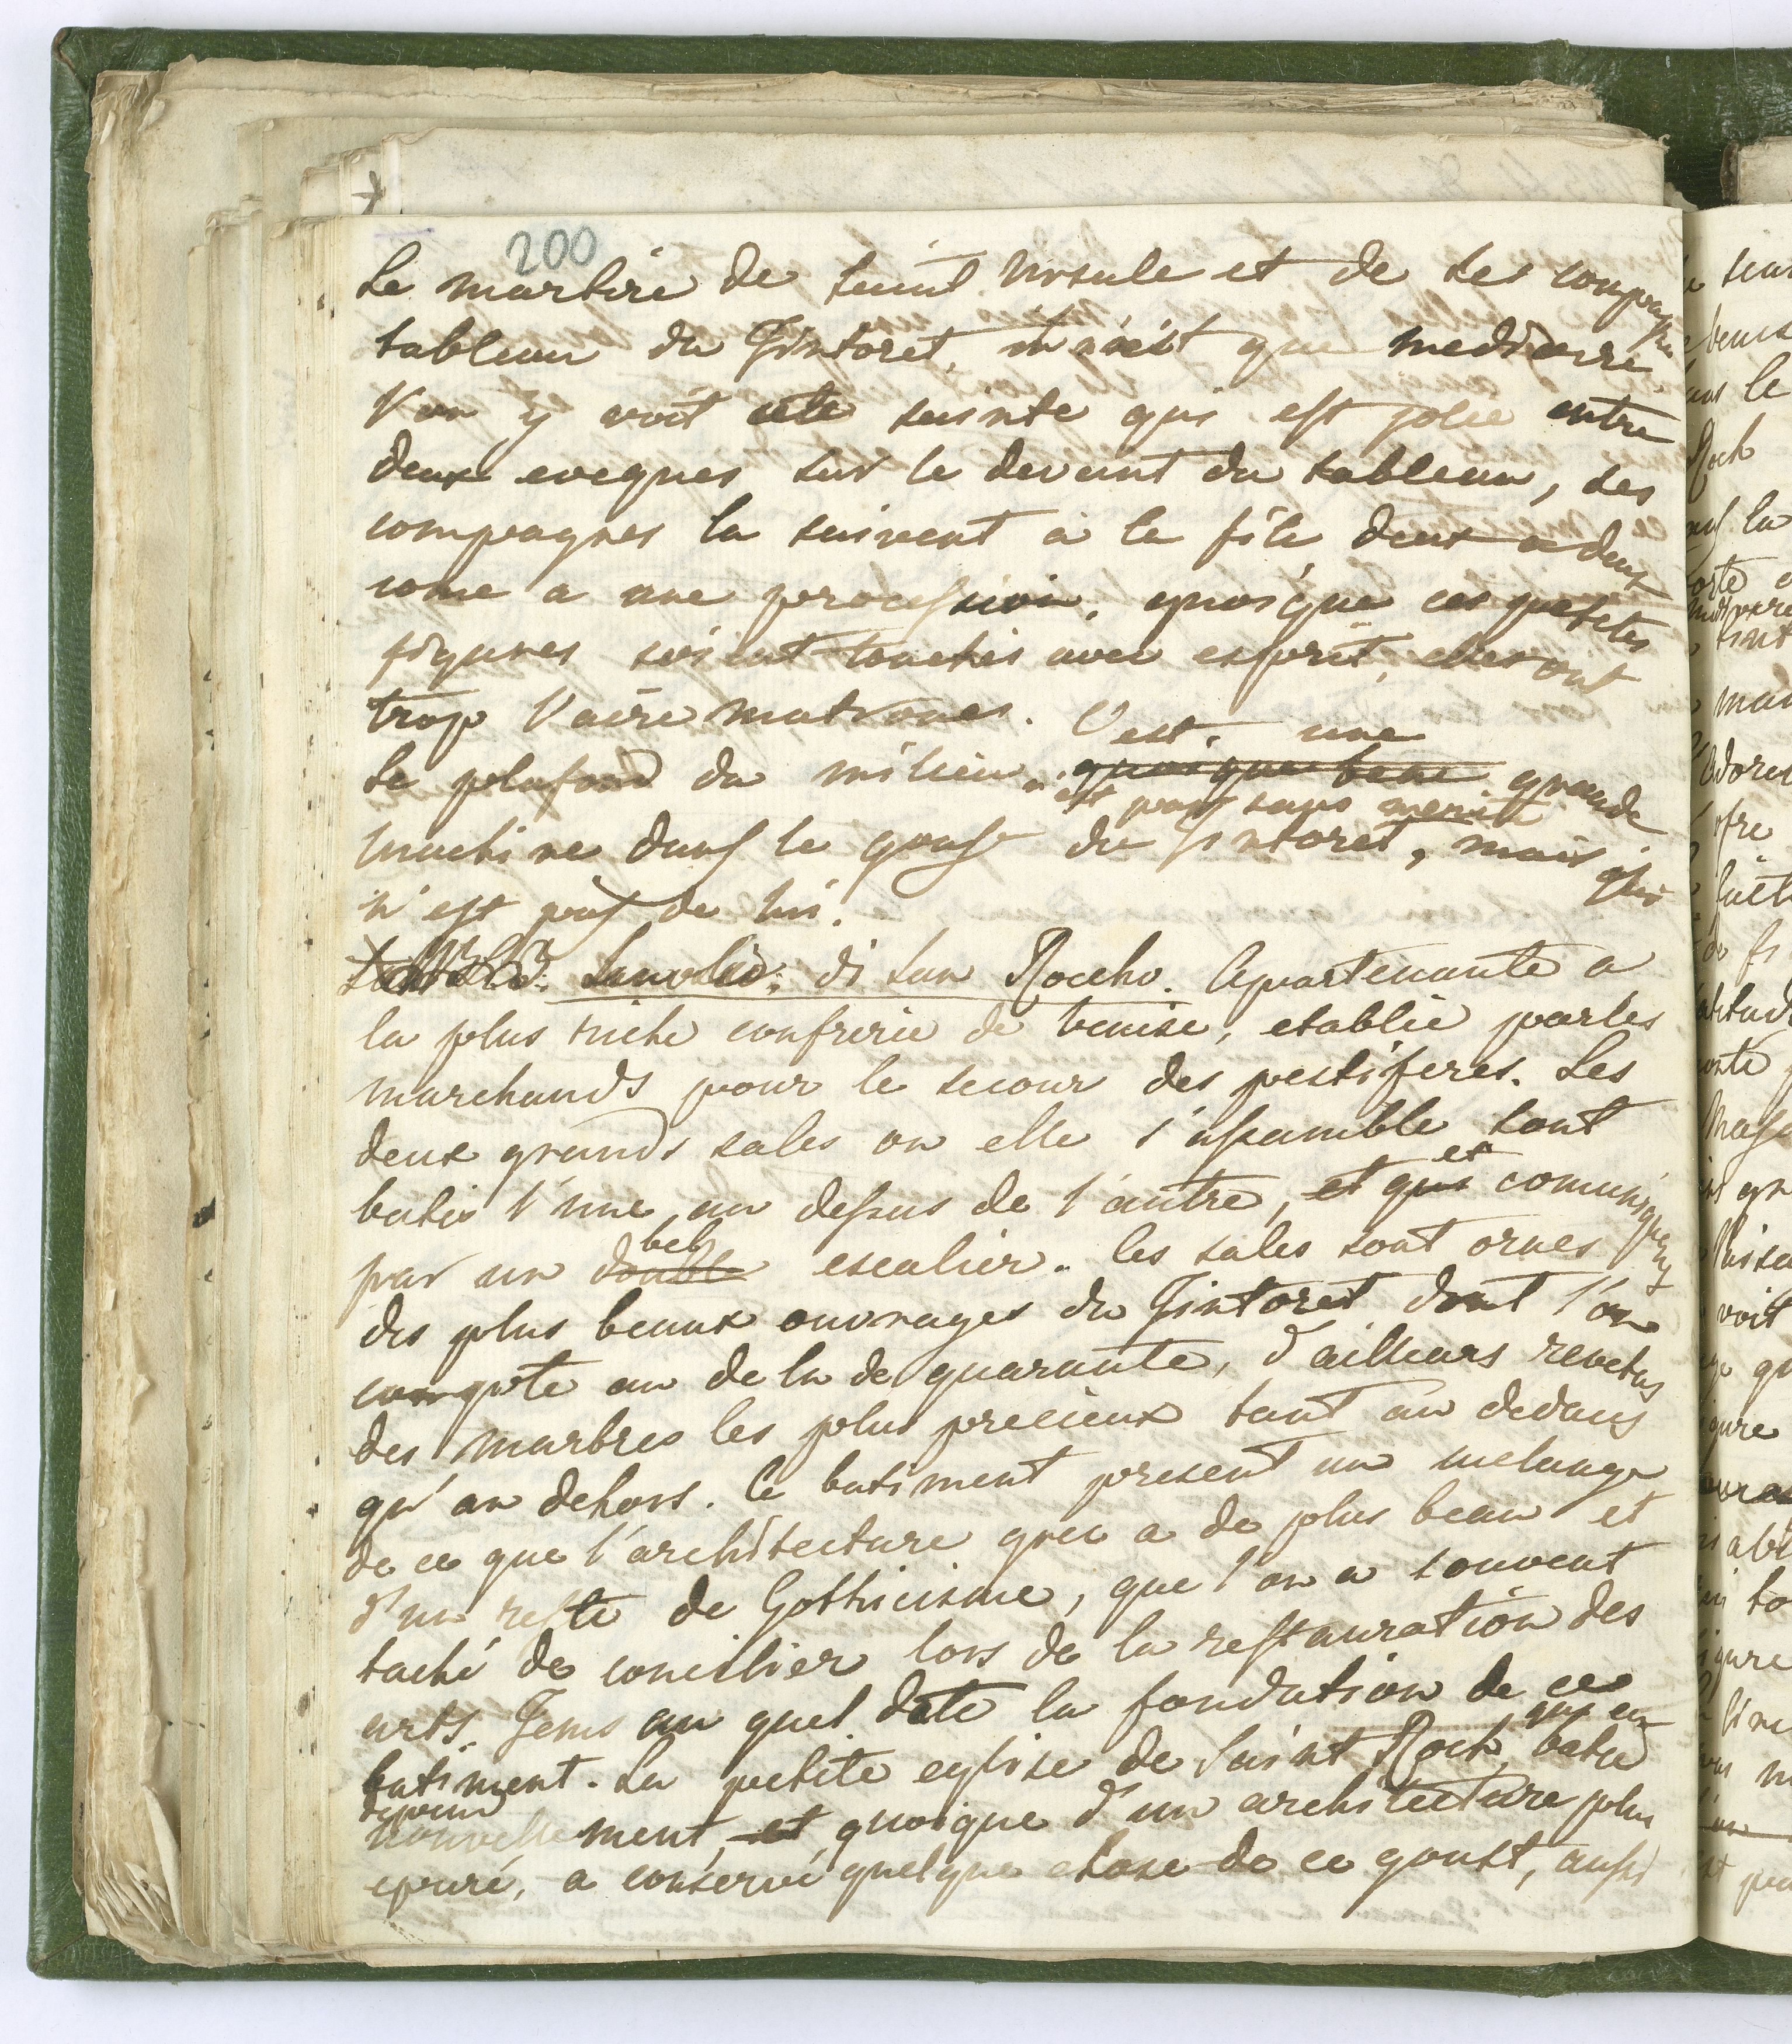 200
Le martire de saint Ursule et de ses compagnes
tableau du Tintoret, n'est que mediocre.
l'on y voit cete sainte qui est jolie entre
deux eveques sur le devant du tableau, ses
compagnes la suivent à la file deux a deux
come a une procession, quoique ces petites
figures soient touchés avec esprit, elles ont
trop l'aire matrones.
Le plafond du milieu n'est pas sans merite C'est une quoique bene grande
machine dans le goust du Tintoret, mais qui
n'est pas de lui.
di San Roccho. Apartenante a
la plus riche confrerie de Venise, etablie par les
marchands pour le secour des pestiferes. Les
deux grands sales ou elle s'assamble sont
batis l'une au dessus de l'autre, et qui et comuniquent
par un double bel escalier. les sales sont ornes
des plus beaux ouvrages du Tintoret dont l'on
compte au de la de quarante, d'ailleurs revetus
des marbres les plus precieux tant au dedans
qu'au dehors. Ce batiment present un melange
de ce que l'architecture grec a de plus beau et
d'un reste de Gotthicisme, que l'on a souvent
taché de concilier lors de la restauration des
arts. Tems au quel date la fondation de ce
batiment. La petite eglise de Saint Roch, batie
nouvellement, et quoique d'un architecture plus
epuré, a conservé quelque chose de ce goust, aussi